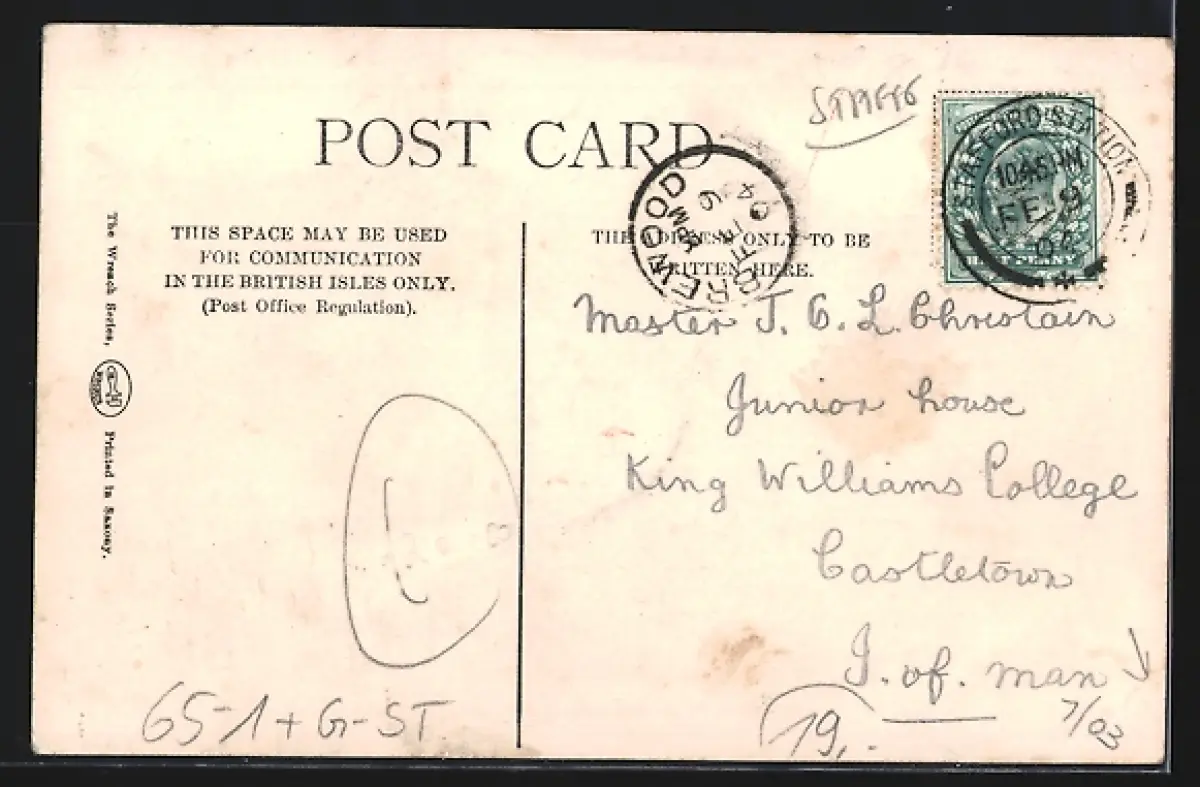 STAFFS
POST CARD
STAFFORD STATION
10.45 PM
FE 9
04
HALFPENNY
BREWOOD
FE 9
04
THIS SPACE MAY BE USED
FOR COMMUNICATION
IN THE BRITISH ISLES ONLY.
(Post Office Regulation).
THE ADDRESS ONLY TO BE
WRITTEN HERE.
The Wrench Series,
Printed in Saxony.
Master J. C. L. Christain
Junior house
King Williams College
Castletown
I. of. man
7/03
19,-
65-1+G-ST